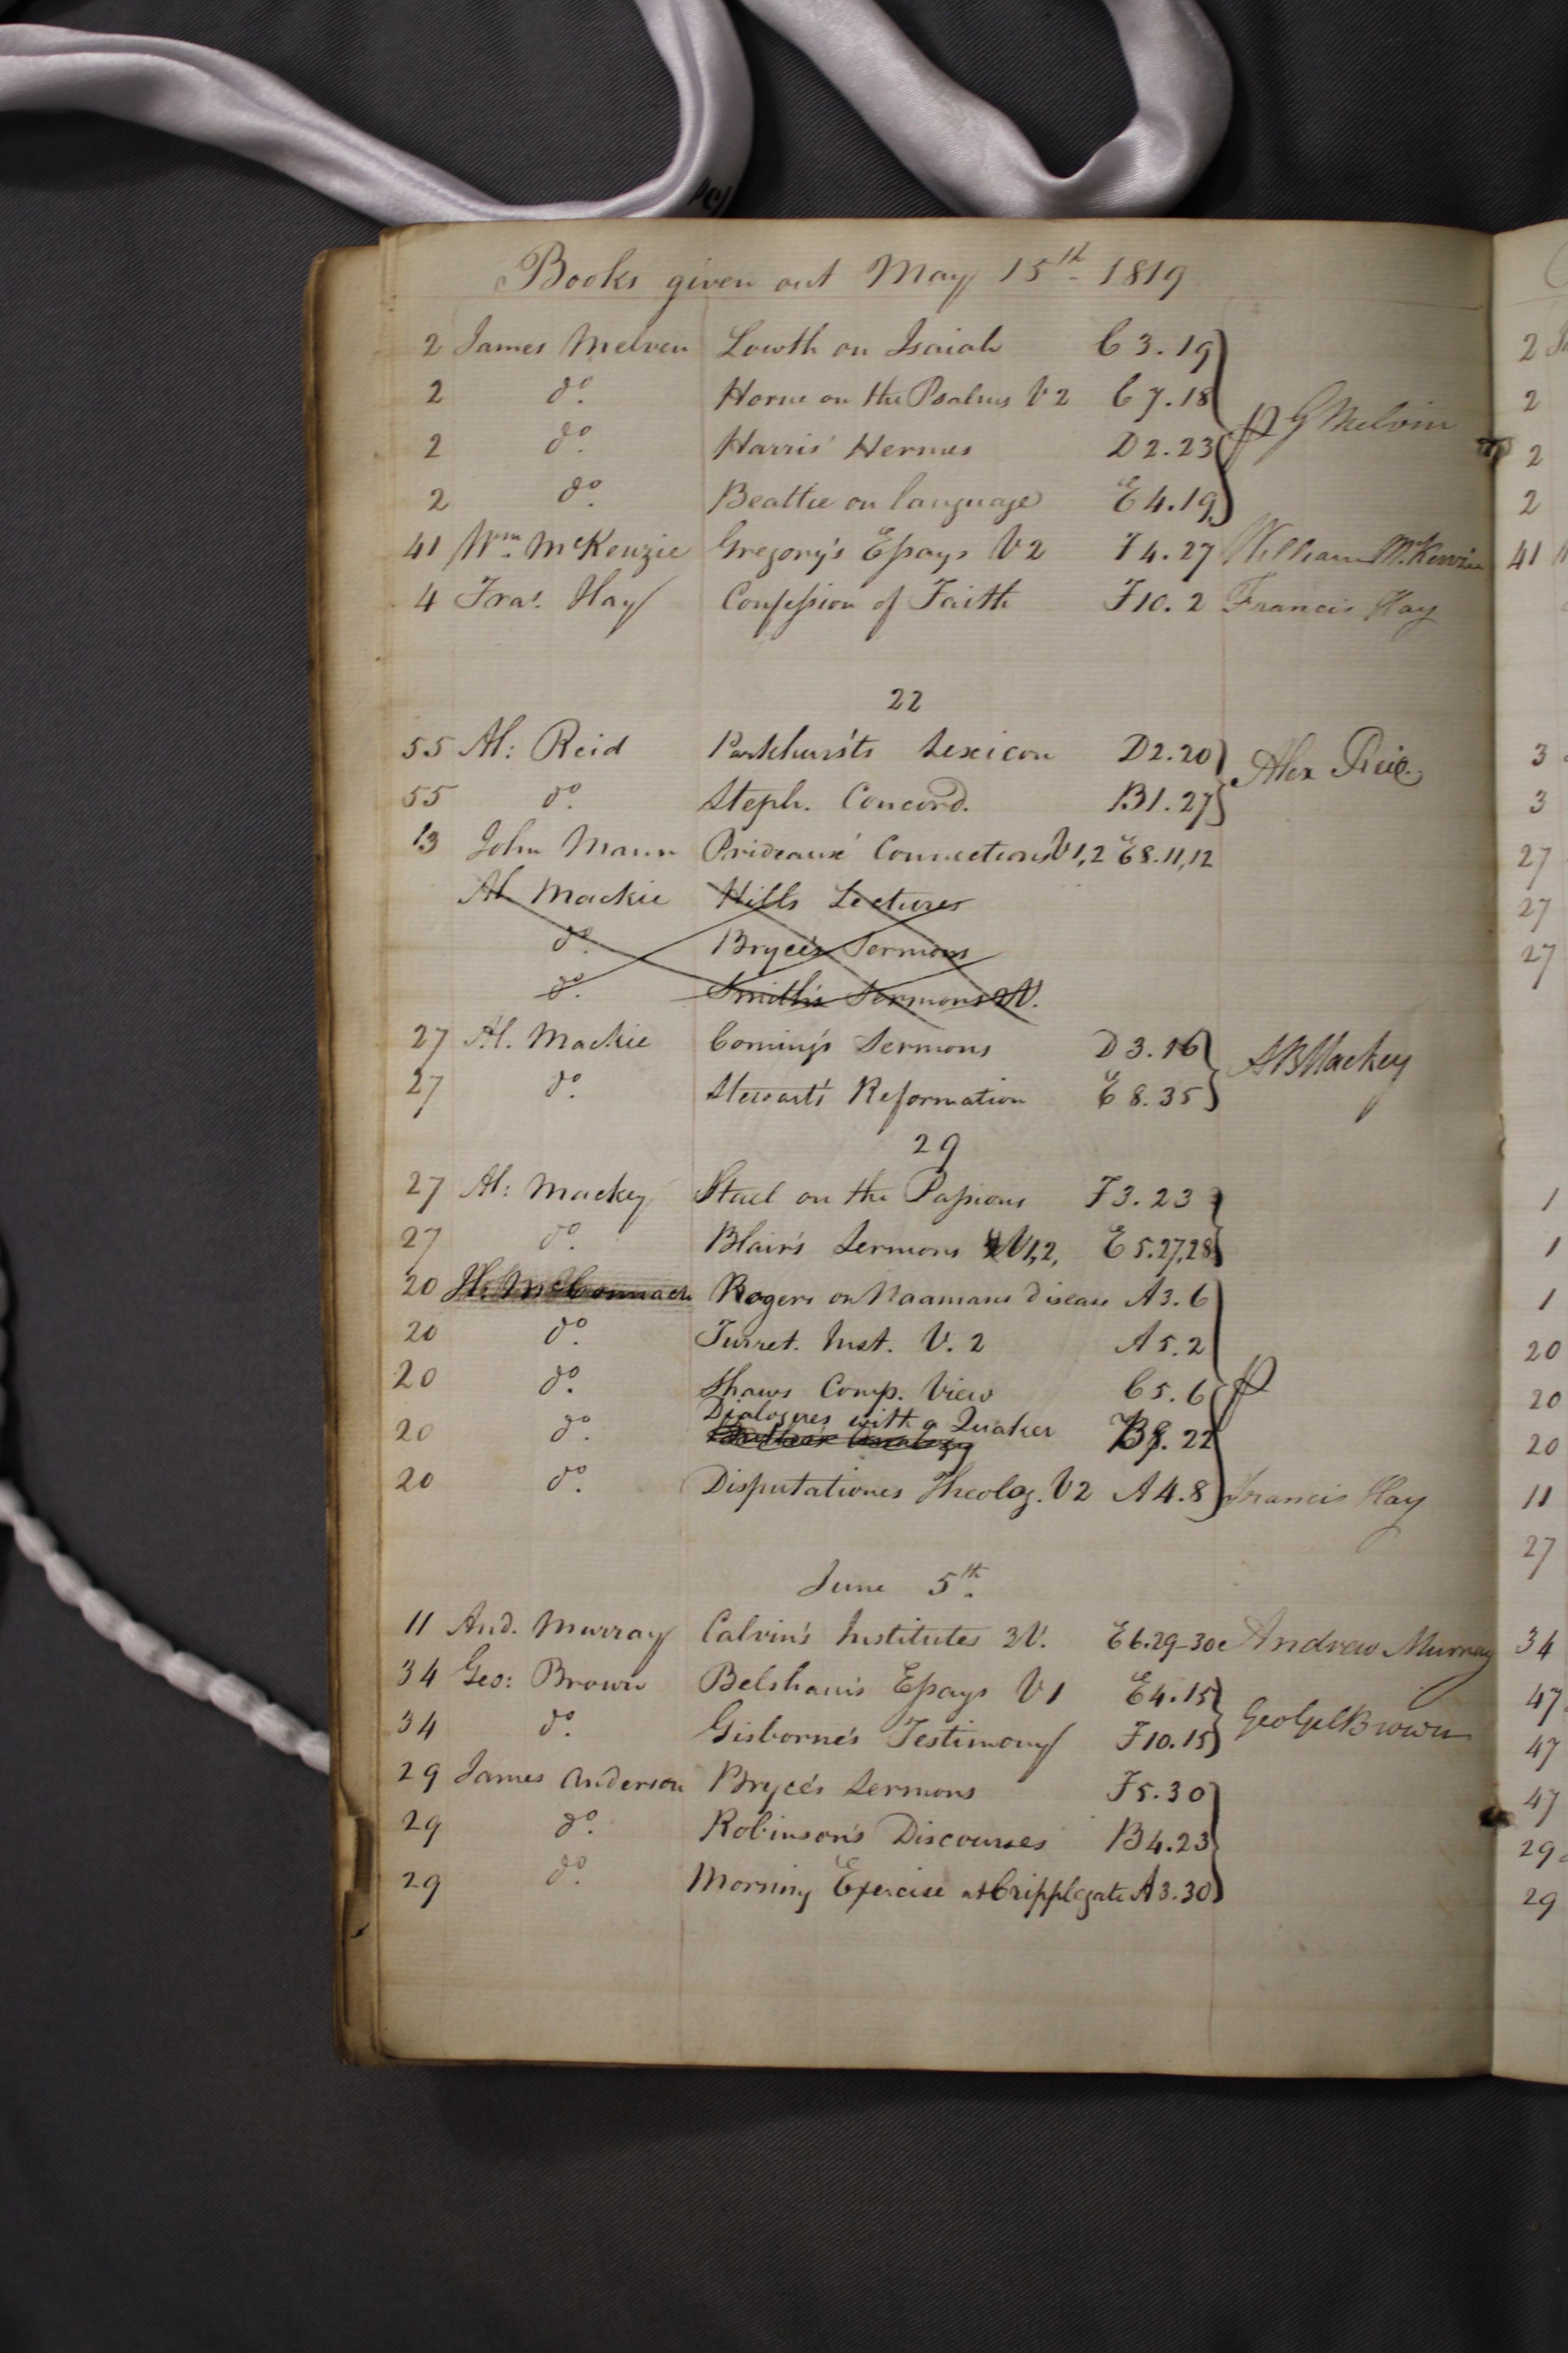 Books given out May 15th 1819
2 James Melven Lowth on Isaiah C3.19
2 do. Horne on the Psalms V2 C7.18
p G Melvin
2 do. Harris' Hermes D2.23
2 do. Beattie on language E4.19
41 Wm. McKenzie Gregory's Essays V2 F4.27 William McKenzie
4 Fras. Hay Confession of Faith F10.2 Francis Hay
22
55 Al: Reid Parkhurst's Lexicon D2.20 Alex Reid
55 do. Steph. Concord. B1.27
13 John Mann Prideaux' Connections V1,2 E8.11,12
Al. Mackie Hill's Lectures
do. Bryce's Sermons
do. Smith's Sermons 2V.
27 Al. Mackie Coming's Sermons D3.16 Mackey
27 do. Stewart's Reformation E8.35
29
27 Al: Mackey Stael on the Passions F3.23
27 do. Blair's Sermons V1,2, E5.27,28
20 Rogers on Naamans disease A3.6
20 do. Turret. Inst. V. 2 A5.2
20 do. Shaws Comp. View C5.6 p
20 do. Dialogues with a Quaker 22
20 do. Disputationes Theolog. V2 A4.8 Francis Hay
June 5th.
11 And. Murray Calvin's Institutes 3V. E6.29-30 Andrew Murray
34 Geo: Brown Belsham's Essays V1 E4.15
34 do. Gisborne's Testimony F10.15 Brown
29 James Anderson Bryce's Sermons F5.30
29 do. Robinson's Discourses B4.23
29 do. Morning Exercise at Cripplegate A3.30
2
2
2
2
41
3
3
27
27
27
1
1
1
20
20
20
11
27
34
47
47
47
29
29